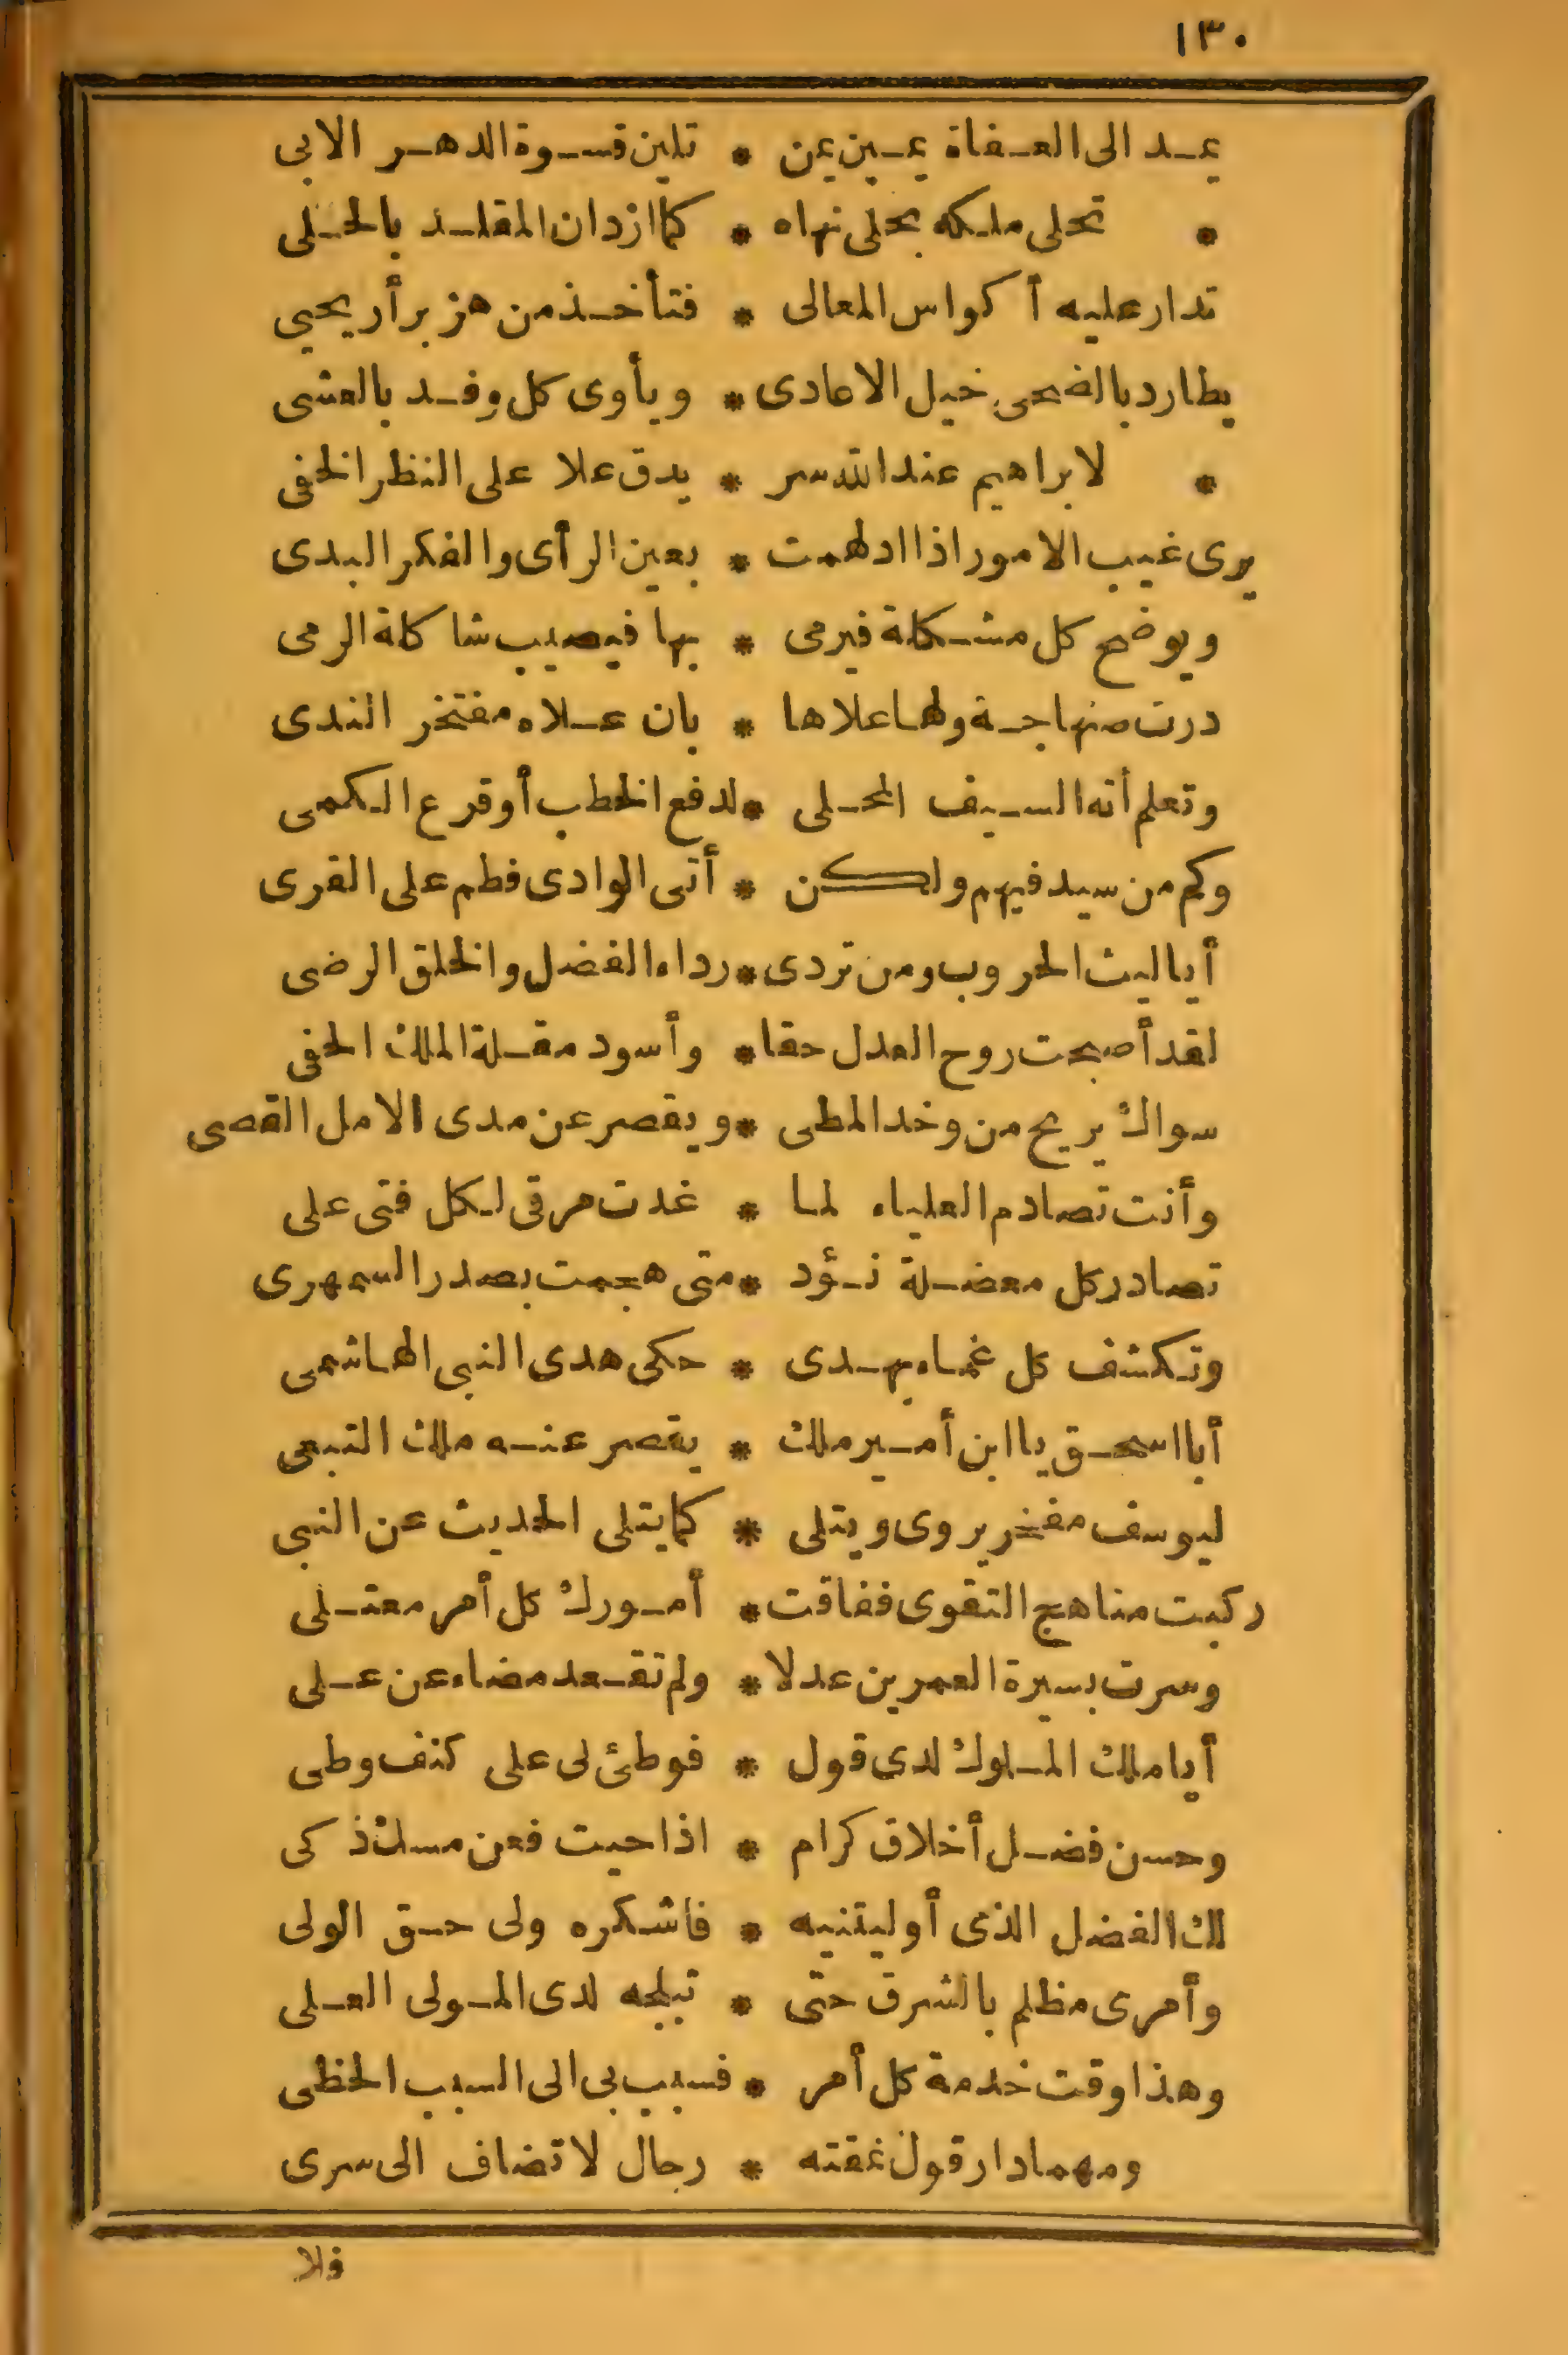 ١٣٠
يمد الى العفاة يمين يمن * تلين قسوة الدهر الابى
* تحلى ملكه بحلى نهاه * كما ازدان المقلد بالحلى
تدار عليه أكواس المعالى * فتأخذ من هزبر أريحيى
يطارد بالضحى خيل الاعادى * ويأوى كل وفد بالعشى
* لابراهيم عند الله سر * يدق علا على النظر الخفى
يرى غيب الامور اذا ادلهمت * بعين الرأى والفكر البدى
ويوضح كل مشكلة فيرمى * بها فيصيب شاكلة الرمى
درت صنهاجة ولها علاها * بان علاه مفتخر الندى
وتعلم أنه السيف المحلى * لدفع الخطب أو قرع الكمى
وكم من سيد فيهم ولكن * أتى الوادى فطم على القرى
أيا ليث الحروب ومن تردى * رداء الفضل والخلق الرضى
لقد أصبحت روح العدل حقا * وأسود مقلة الملك الحفى
سواك يريح من وخد المطى * ويقصر عن مدى الامل القصى
وأنت تصادم العلياء لما * غدت مرقى لكل فتى على
تصادر كل معضلة نؤد * متى هجمت بصدر السمهرى
وتكشف كل غماء بهدى * حكى هدى النبى الهاشمى
أبا اسحق يا ابن أمير ملك * يقصر عنه ملك التبعى
ليوسف مفخر يروى ويتلى * كما يتلى الحديث عن النبى
ركبت مناهج التقوى ففاقت * أمورك كل أمر معتلى
وسرت بسيرة العمرين عدلا * ولم تقعد مضاء عن على
أيا ملك الملوك لدى قول * فوطئ لى على كنف وطى
وحسن فضل أخلاق كرام * اذا حيت فعن مسك ذكى
لك الفضل الذى أوليتنيه * فاشكره ولى حق الولى
وأمرى مظلم بالشرق حتى * تبلجه لدى المولى العلى
وهذا وقت خدمة كل أمر * فسبب بى الى السبب الحظى
ومهما دار قول نمقته * رجال لا تضاف الى سرى
فلا